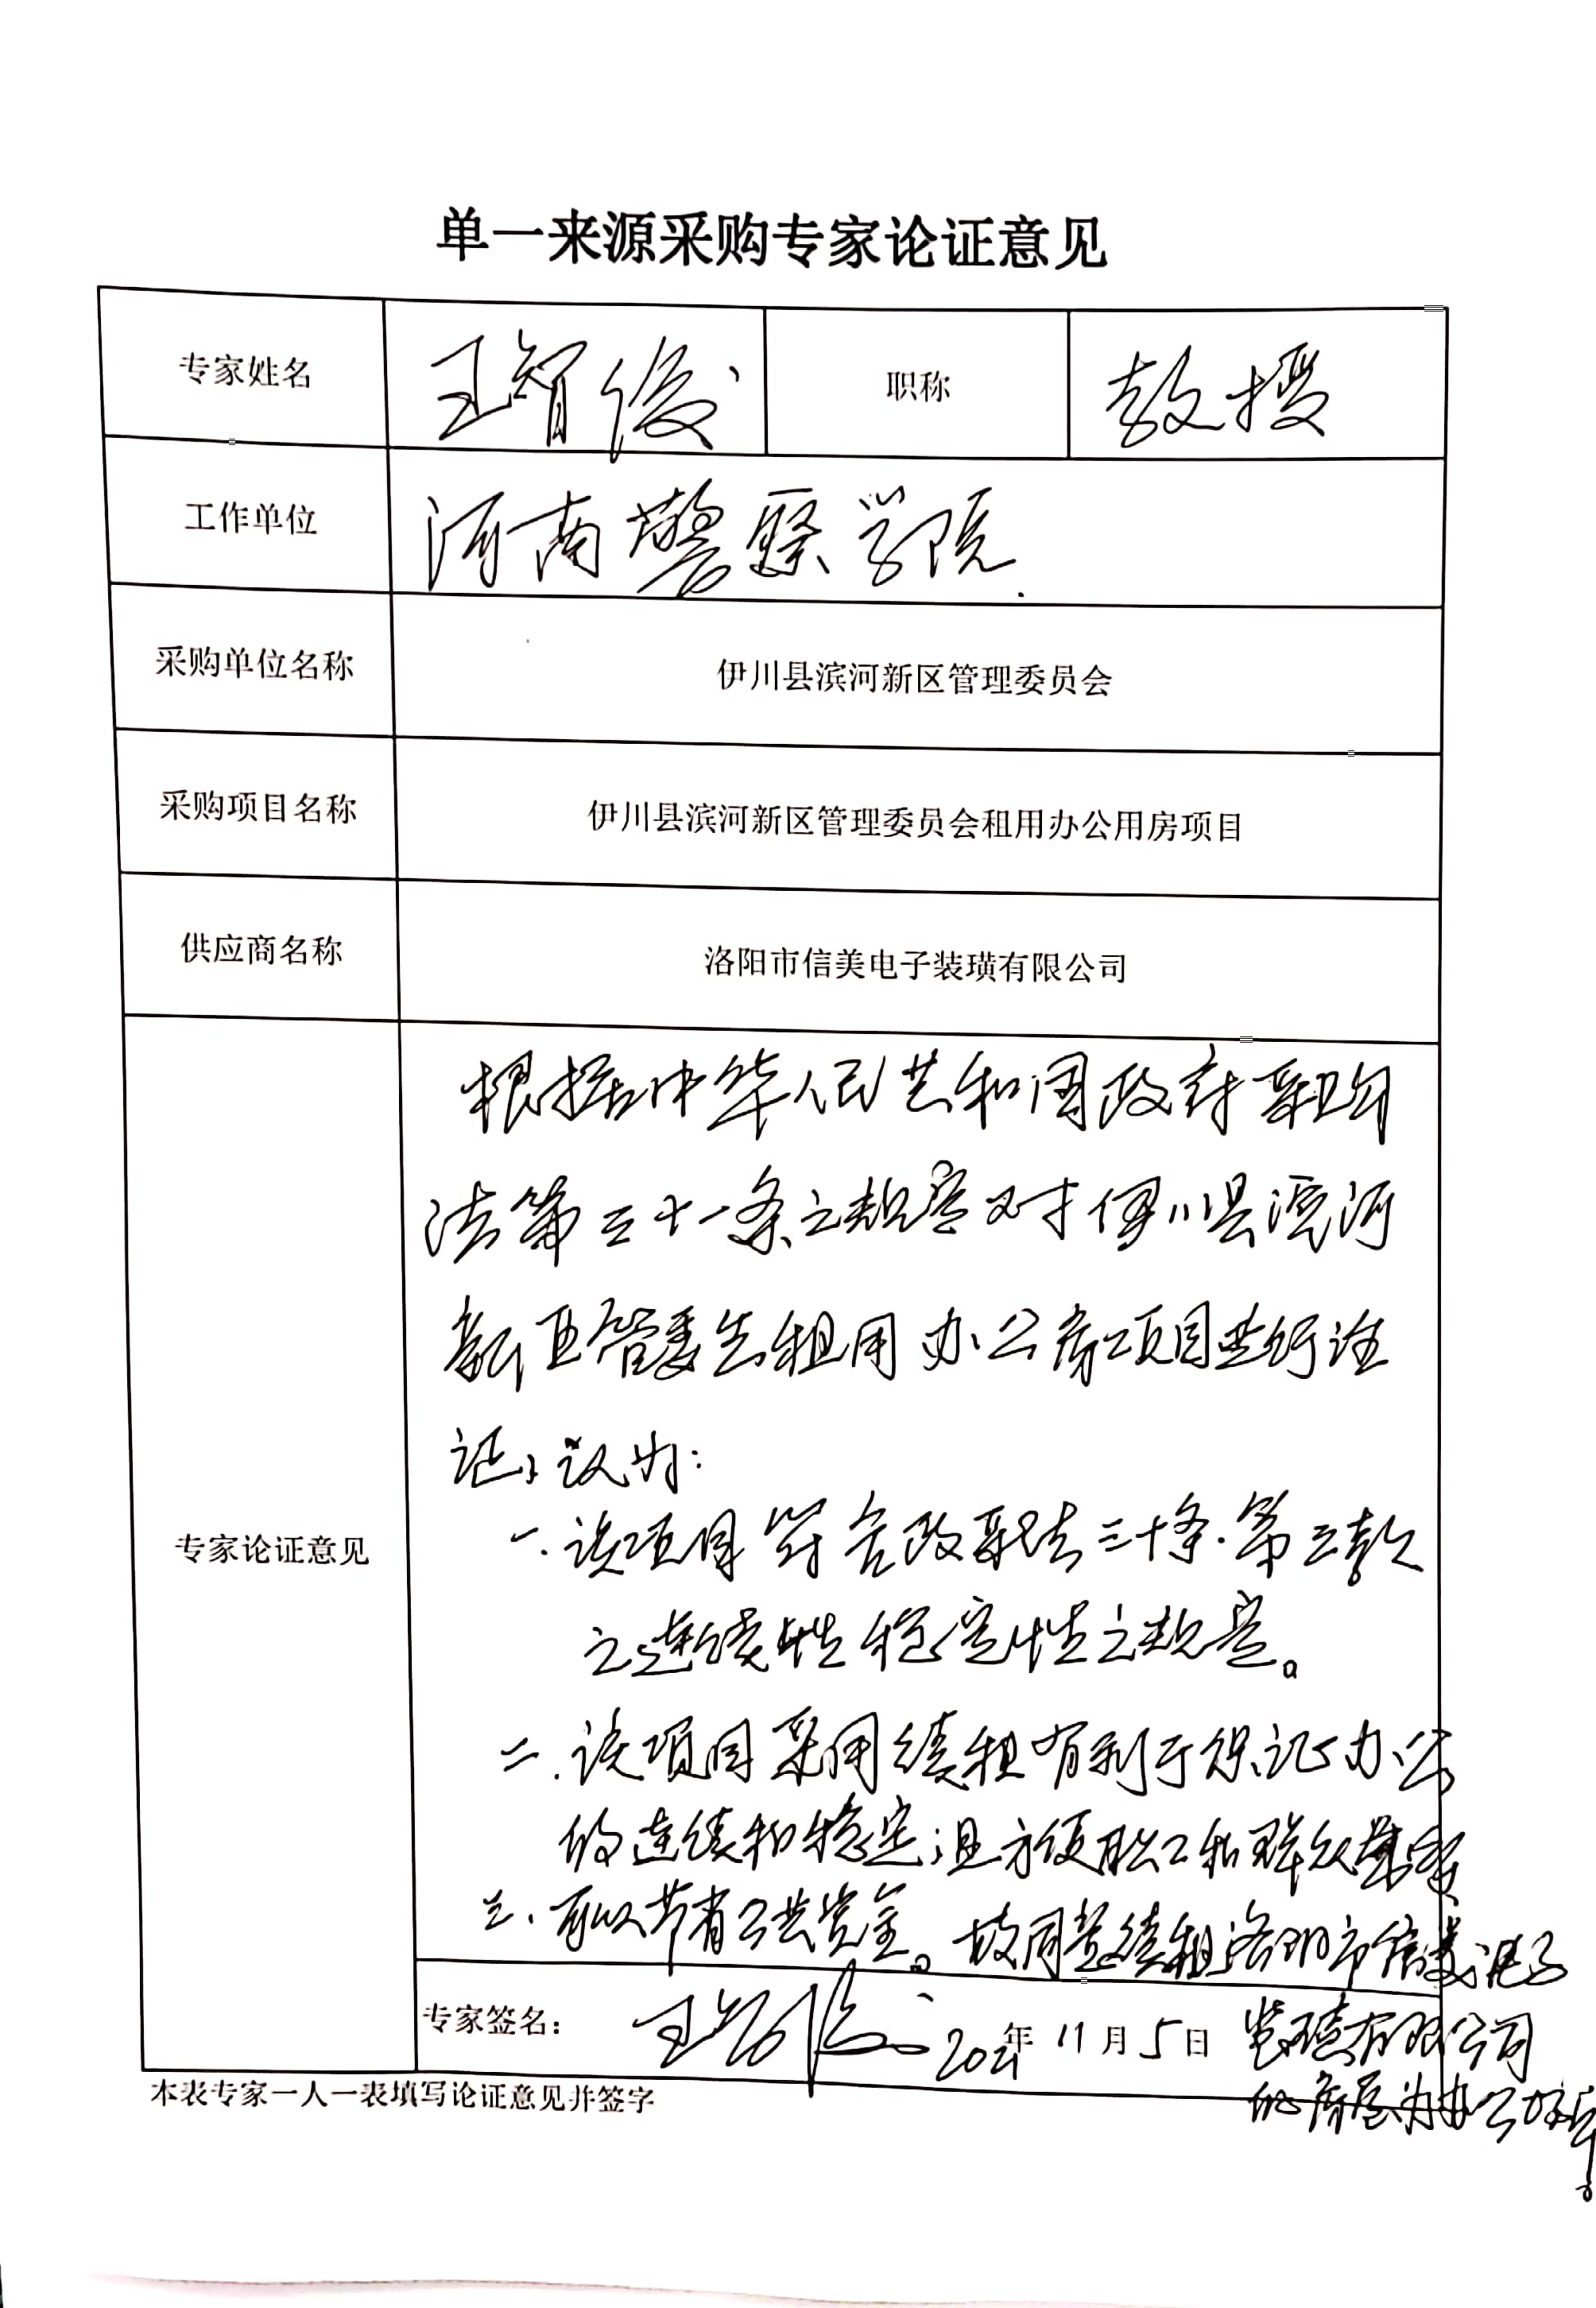 单一来源采购专家论证意见
专家姓名 王智俊 职称 教授
工作单位 河南警察学院.
采购单位名称 伊川县滨河新区管理委员会
采购项目名称 伊川县滨河新区管理委员会租用办公用房项目
供应商名称 洛阳市信美电子装璜有限公司
专家论证意见
根据中华人民共和国政府采购
法第三十一条之规定对伊川县滨河
新区管委会租用办公房项目进行论
证，认为：
一.该项目符合政采法三十条.第三款
之连续性稳定性之规定。
二.该项目采用续租有利于保证办公
的连续和稳定；且方便职工和群众
三、可以节省公共资金。故同意续租洛阳市信美电子
装璜有限公司
的房屋为办公
专家签名： 王智俊 2021年11月5日
本表专家一人一表填写论证意见并签字